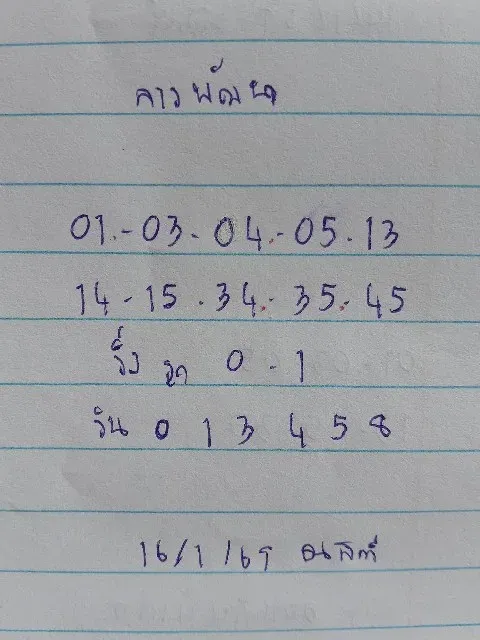 ลาวพัฒนา
01.-03-04.-05.13
14-15.34.-35.-45
วิ่ง รูด 0-1
วิน 0 1 3 4 5 8
16/1/65